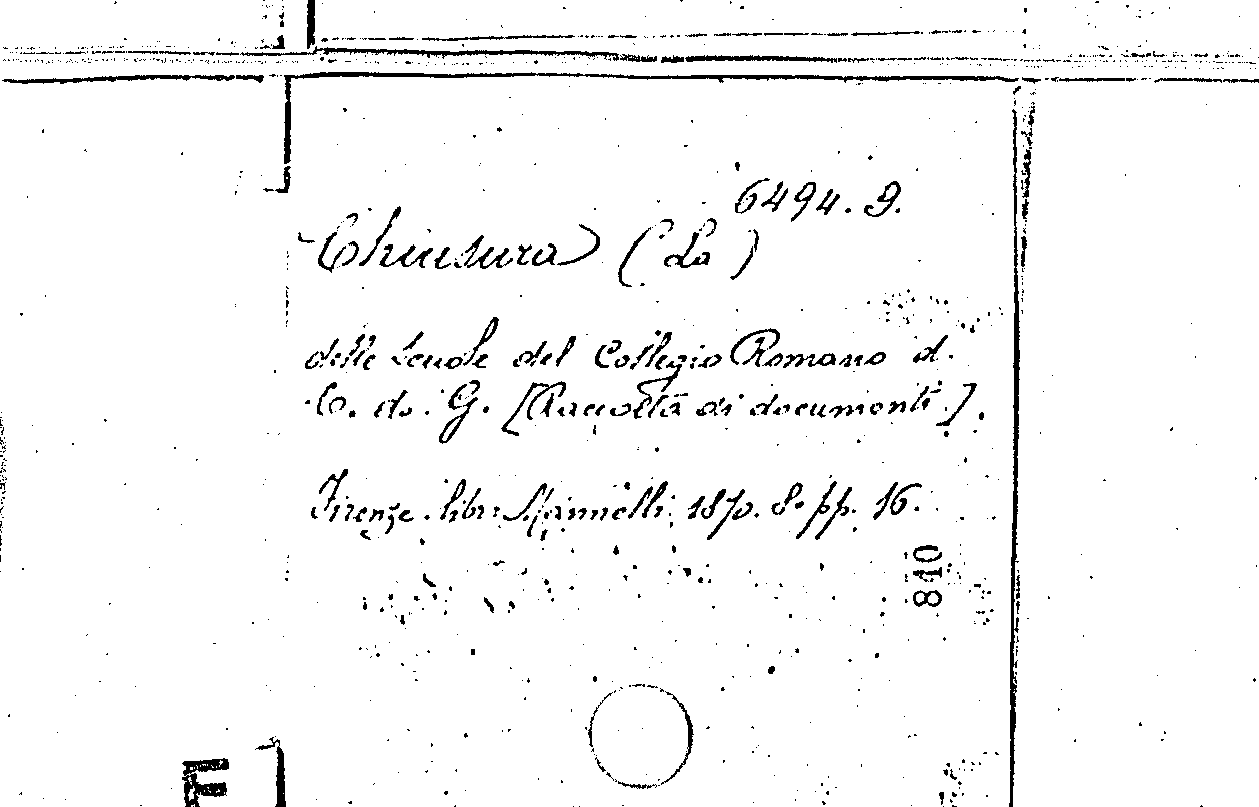 6494. 9.
Chiusura (La)
delle Scuole del Collegio Romano d.
C. di G. [Raccolta di documenti].
Firenze. libr. Mannelli. 1870. 8.° pp. 16.
840